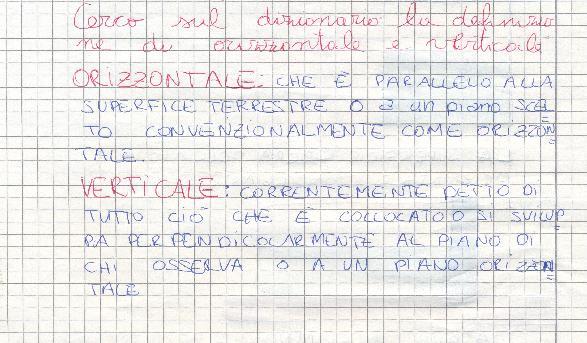 Cerco sul dizionario la definizio
ne di orizzontale e verticale
ORIZZONTALE: CHE È PARALLELO ALLA
SUPERFICE TERRESTRE O a un piano SCEL
TO CONVENZIONALMENTE COME ORIZZON
TALE.
VERTICALE: CORRENTEMENTE DETTO DI
TUTTO CIÒ CHE È COLLOCATO O SI SVILUP
PA PERPENDICOLARMENTE AL PIANO DI
CHI OSSERVA O A UN PIANO ORIZZON
TALE